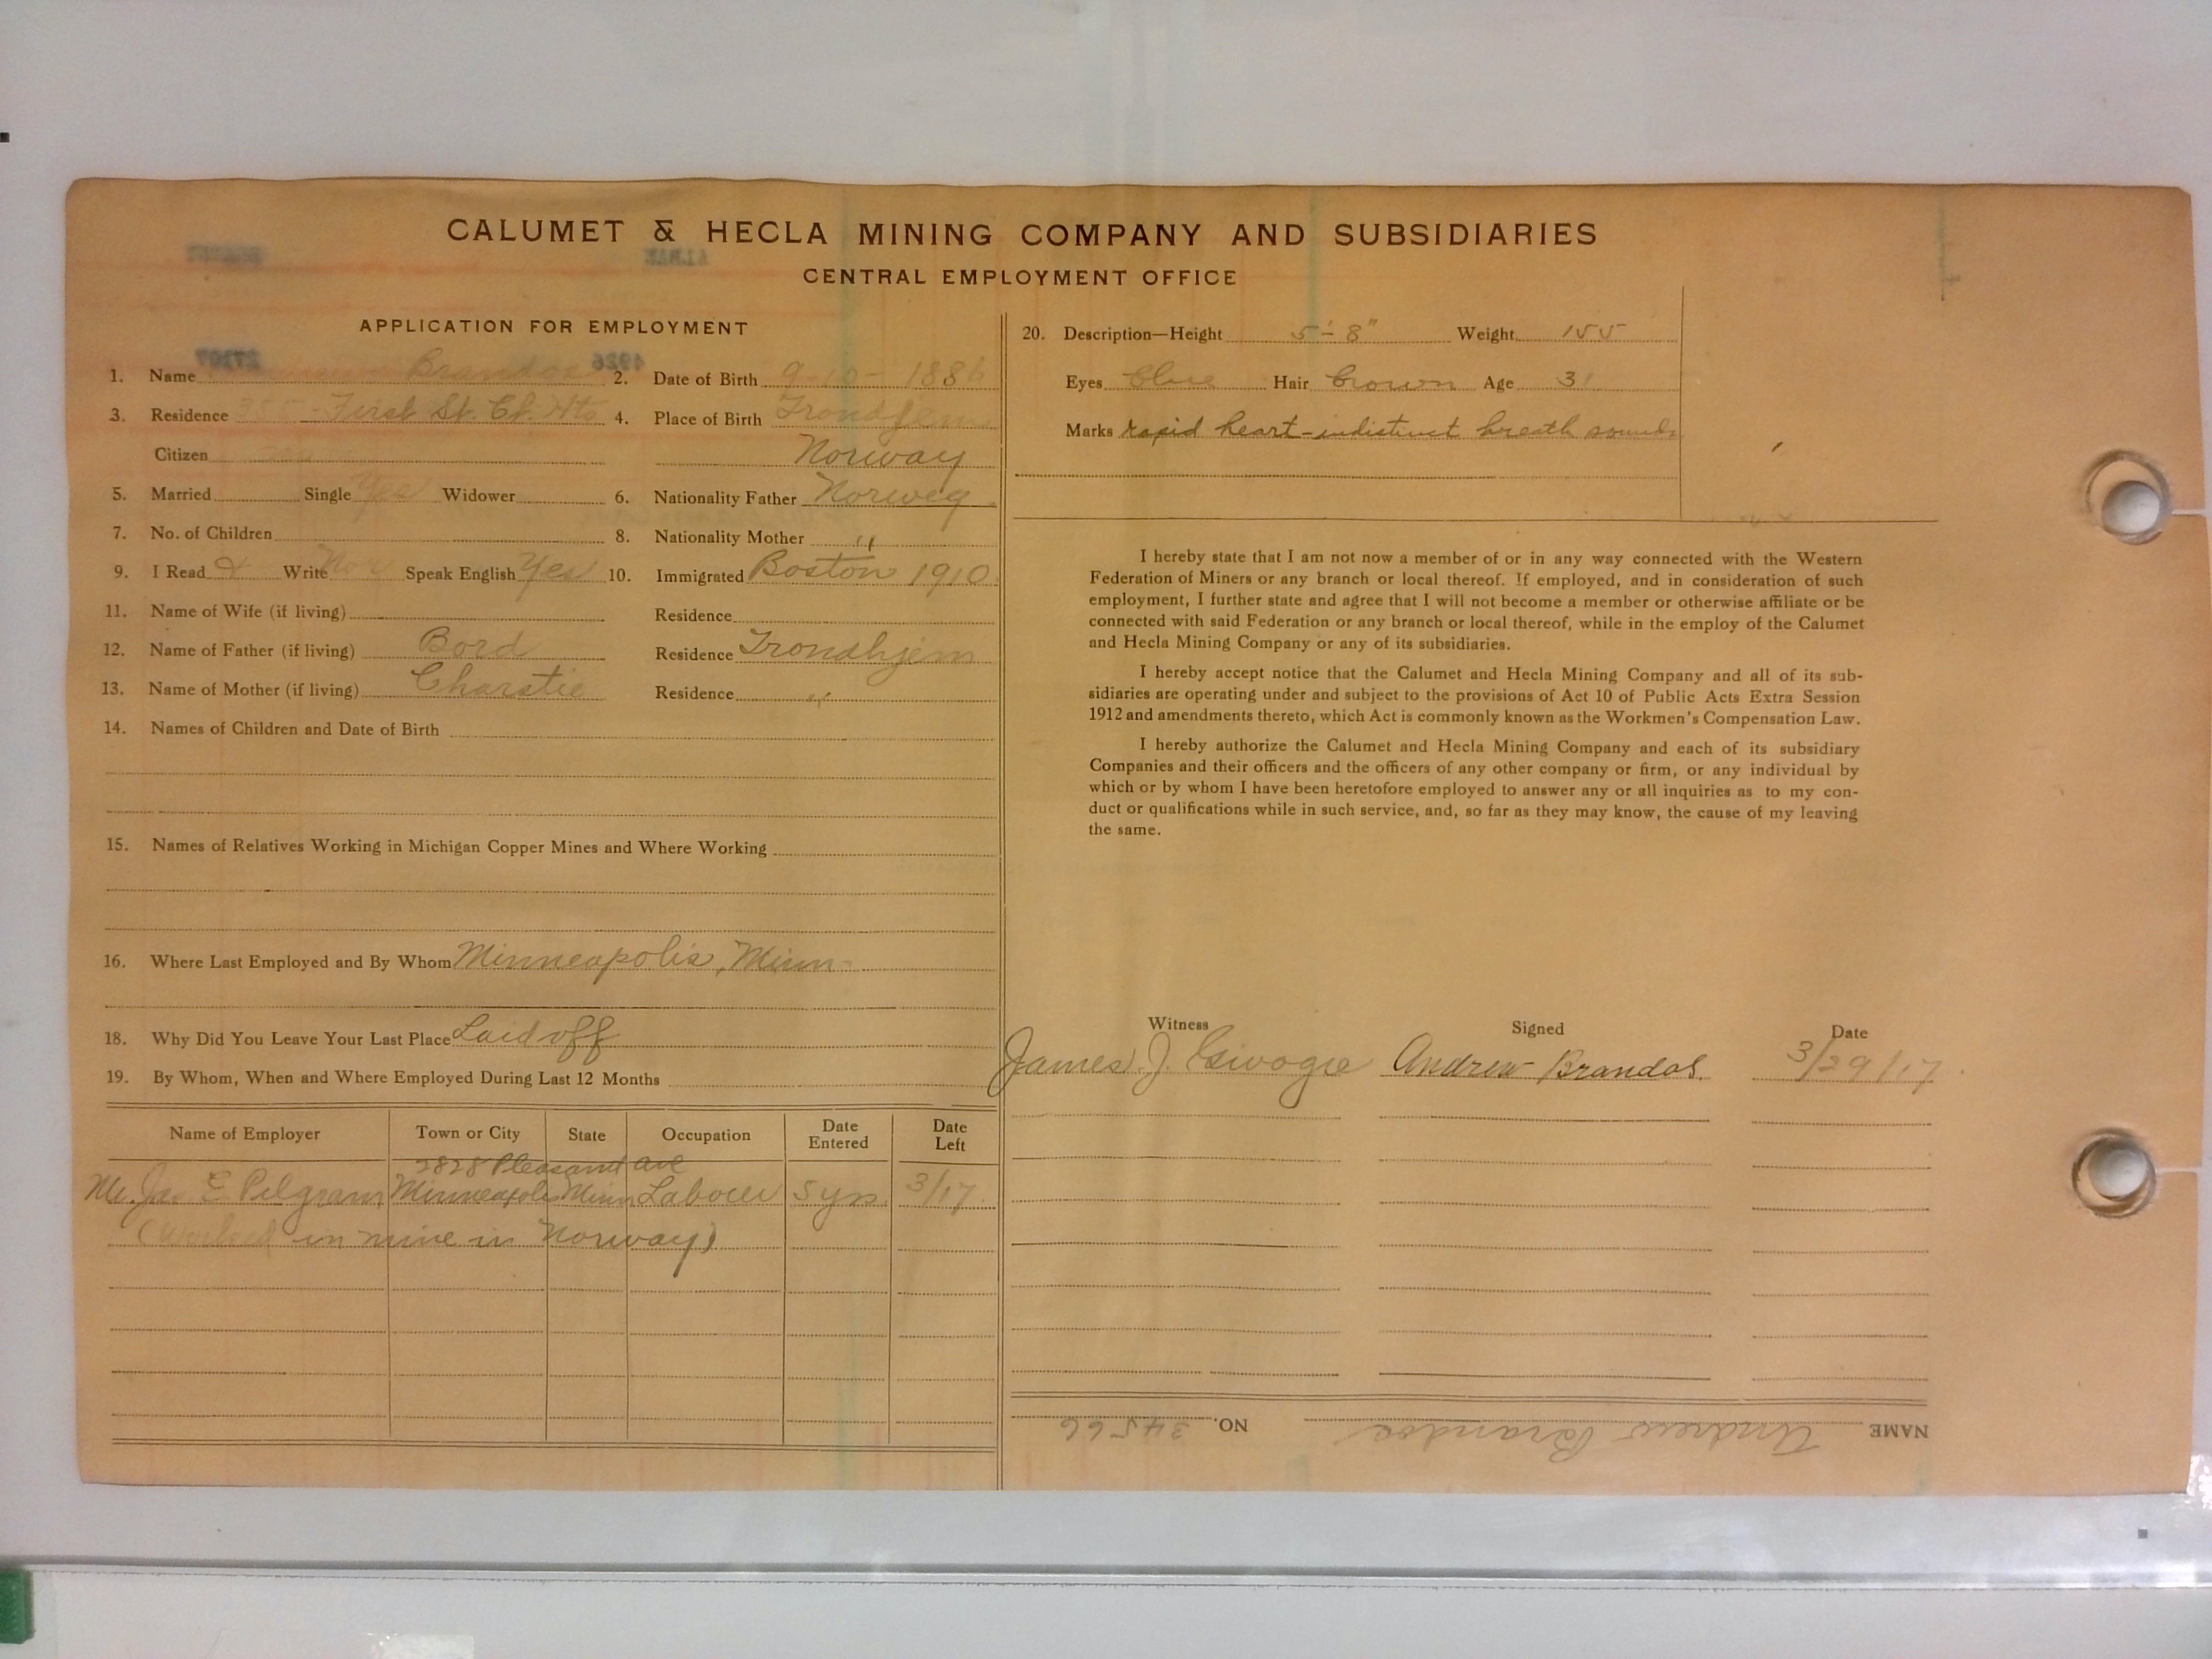 CALUMET & HECLA MINING COMPANY AND SUBSIDIARIES
CENTRAL EMPLOYMENT OFFICE
APPLICATION FOR EMPLOYMENT
1. Name Brandos 2. Date of Birth 9-10-1886
3. Residence First St. 4. Place of Birth Trondhjem
Citizen Norway
5. Married Single Yes Widower 6. Nationality Father Norweg
7. No. of Children 8. Nationality Mother "
9. I Read & Write Nor Speak English Yes 10. Immigrated Boston 1910
11. Name of Wife (if living) Residence
12. Name of Father (if living) Bord Residence Trondhjem
13. Name of Mother (if living) Charstie Residence "
14. Names of Children and Date of Birth
15. Names of Relatives Working in Michigan Copper Mines and Where Working
16. Where Last Employed and By Whom Minneapolis, Minn
18. Why Did You Leave Your Last Place Laid off
19. By Whom, When and Where Employed During Last 12 Months
Name of Employer Town or City State Occupation Date Entered Date Left
2828 Pleasant ave
Mr. Jas E Pilgram Minneapolis Minn Labour 5 yrs. 3/17
(Worked in mine in Norway)
20. Description—Height 5'-8" Weight 155
Eyes Blue Hair Brown Age 31
Marks rapid heart-indistinct breath sounds
I hereby state that I am not now a member of or in any way connected with the Western
Federation of Miners or any branch or local thereof. If employed, and in consideration of such
employment, I further state and agree that I will not become a member or otherwise affiliate or be
connected with said Federation or any branch or local thereof, while in the employ of the Calumet
and Hecla Mining Company or any of its subsidiaries.
I hereby accept notice that the Calumet and Hecla Mining Company and all of its sub-
sidiaries are operating under and subject to the provisions of Act 10 of Public Acts Extra Session
1912 and amendments thereto, which Act is commonly known as the Workmen's Compensation Law.
I hereby authorize the Calumet and Hecla Mining Company and each of its subsidiary
Companies and their officers and the officers of any other company or firm, or any individual by
which or by whom I have been heretofore employed to answer any or all inquiries as to my con-
duct or qualifications while in such service, and, so far as they may know, the cause of my leaving
the same.
Witness Signed Date
James J. Andrew Brandos. 3/29/17
NAME Andrew Brandos NO. 34566